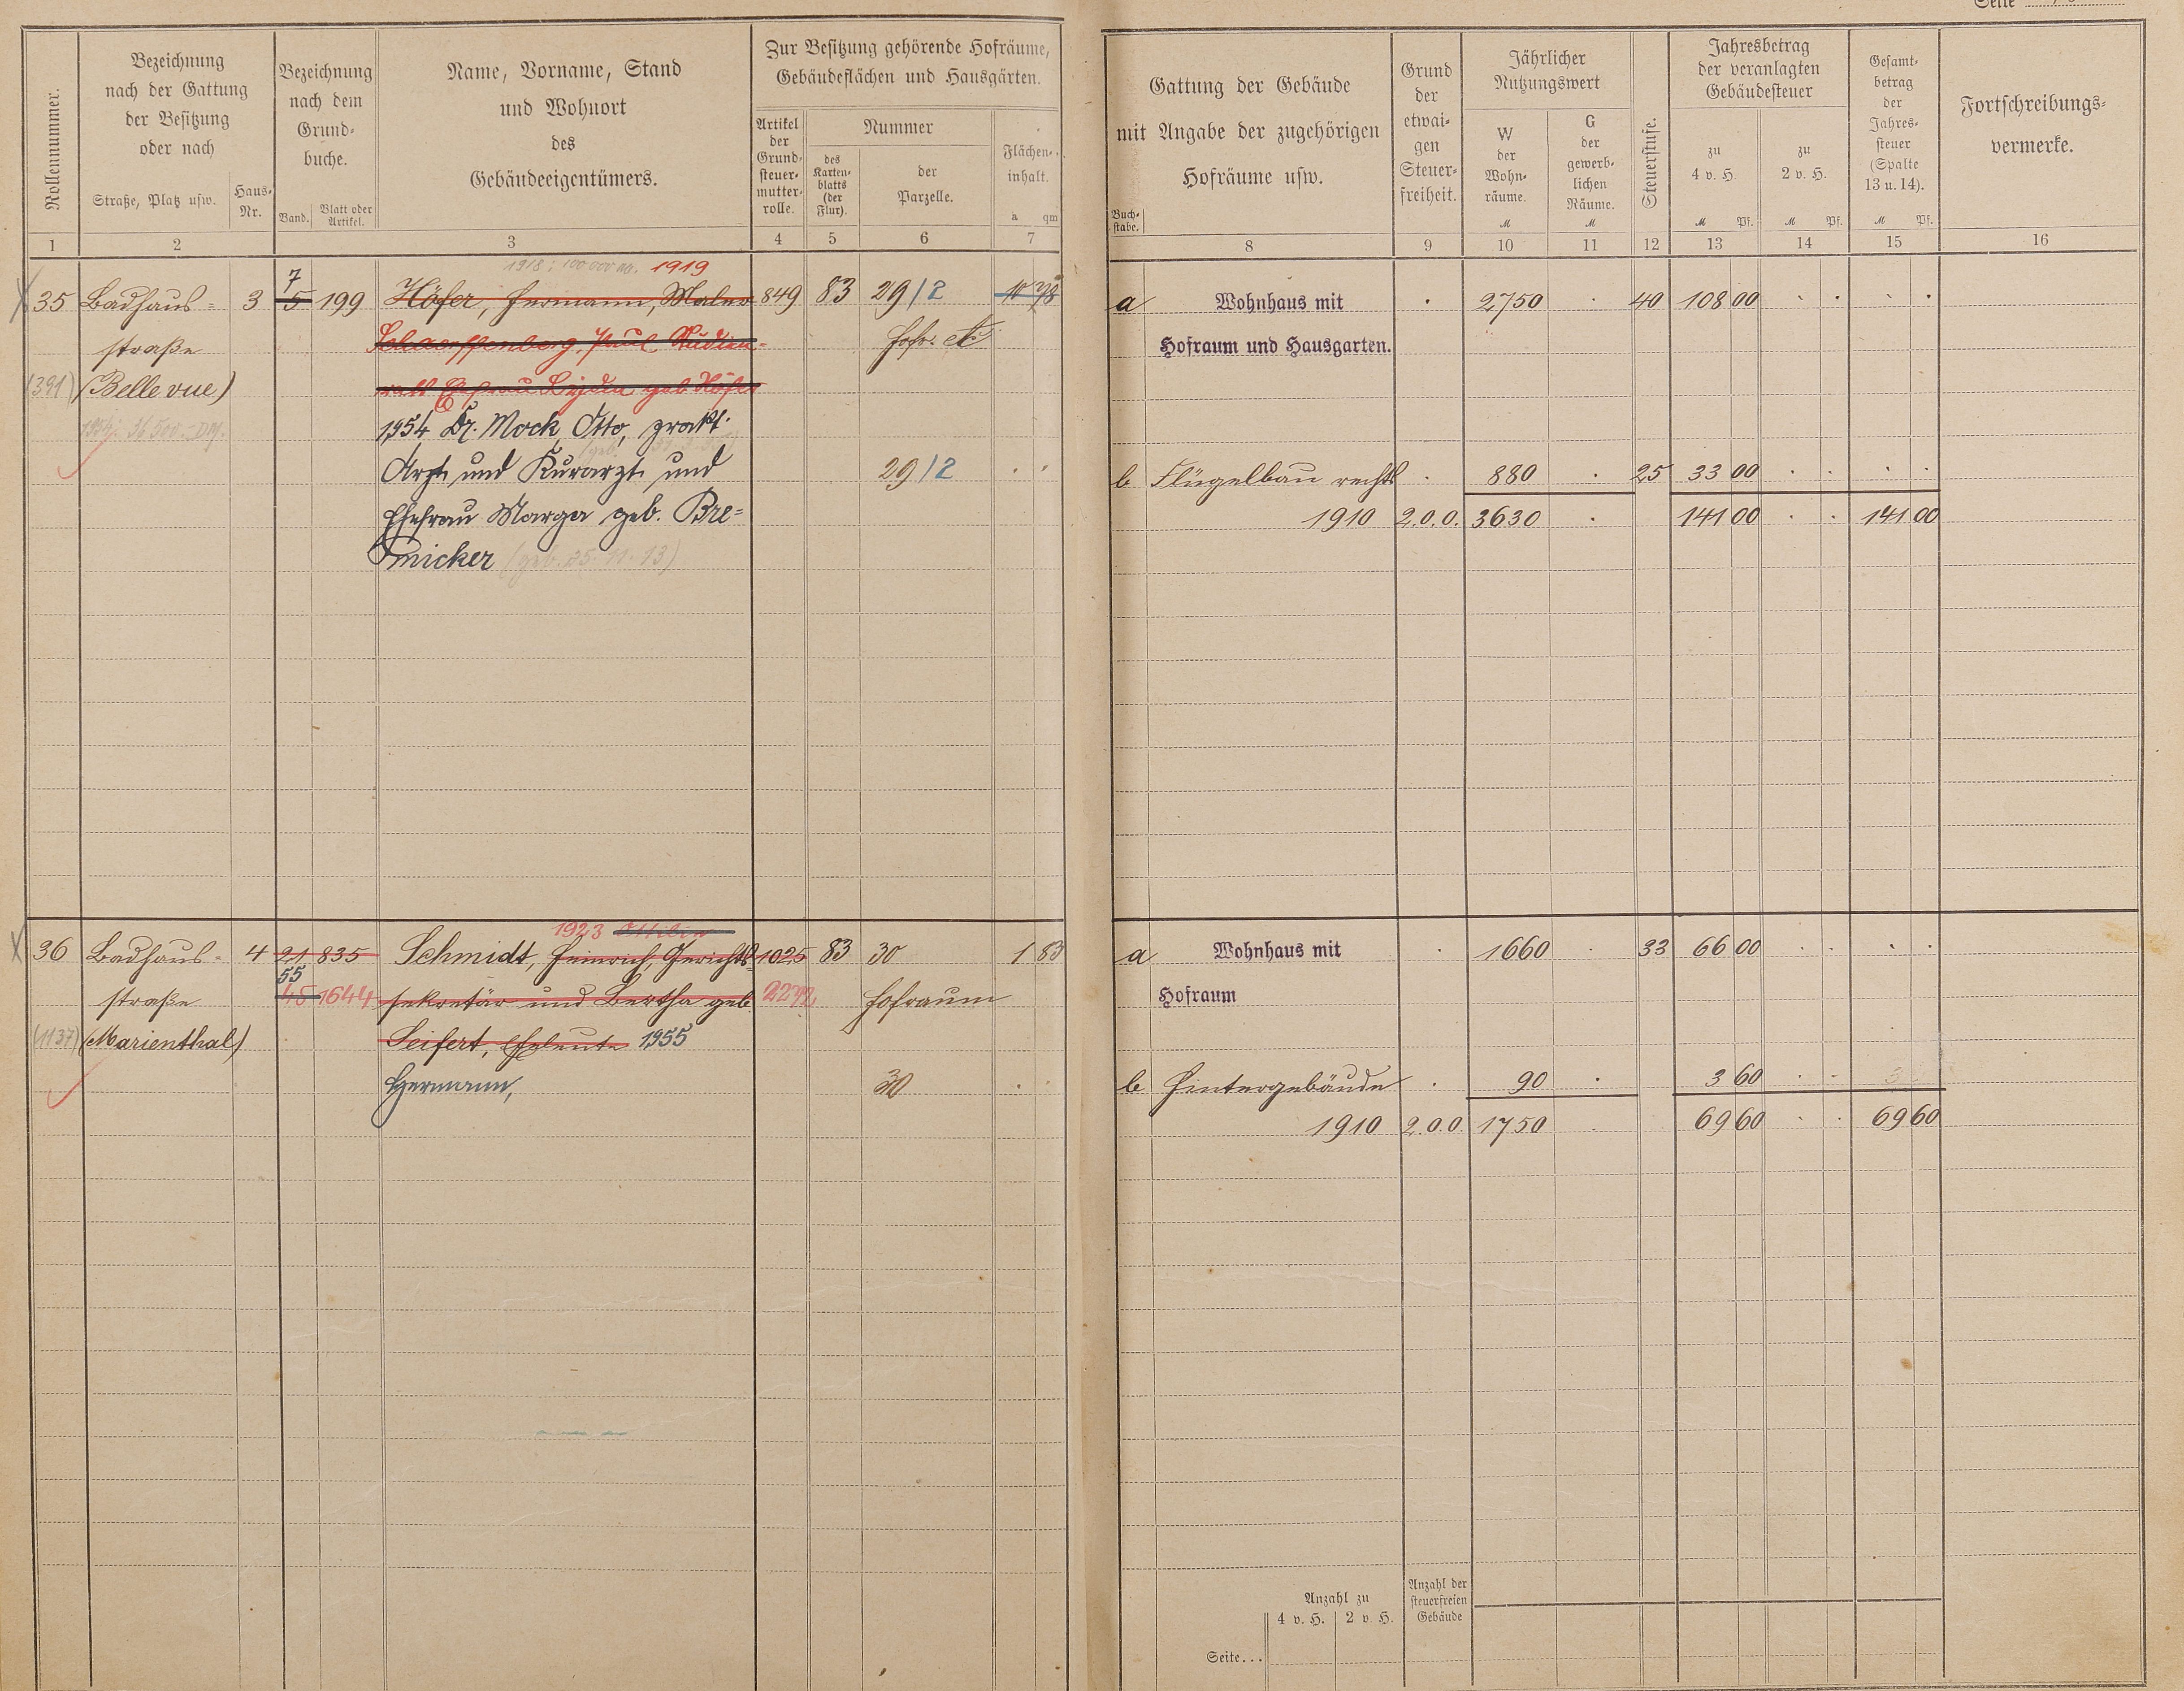 Seite
Rollennummer.
Bezeichnung
nach der Gattung
der Besitzung
oder nach
Straße, Platz usw.
Haus-
Nr.
Bezeichnung
nach dem
Grund-
buche.
Band.
Blatt oder
Artikel.
Name, Vorname, Stand
und Wohnort
des
Gebäudeeigentümers.
Zur Besitzung gehörende Hofräume,
Gebäudeflächen und Hausgärten.
Artikel
der
Grund-
steuer-
mutter-
rolle.
Nummer
des
Karten-
blatts
(der
Flur).
der
Parzelle.
Flächen-
inhalt.
a qm
1 2 3 4 5 6 7
1918: 100 000 M. 1919
35 Badhaus= 3 7 5 199 Höfer, Hermann, Maler 849 83 29/2 10 78
straße Schaerffenberg, Paul Studien- Hofr. etc
(391) (Bellevue) ratt Ehefrau Lydia geb Höfer
36 500.- DM. 1954 Dr. Mock, Otto, prakt.
Arzt und Kurarzt und 29/2 . .
Ehefrau Marga geb. Bre=
micker (geb. 25.11.13)
1923 Ottilie
36 Badhaus- 4 21 835 Schmidt, Heinrich, Gerichts- 1025 83 30 1 83
55
straße 45 1644 sekretär und Bertha geb. 2272 Hofraum
(1137) (Marienthal) Seifert, Eheleute 1955
Hermann, 30 .
Gattung der Gebäude
mit Angabe der zugehörigen
Hofräume usw.
Buch-
stabe.
Grund
der
etwai-
gen
Steuer-
freiheit.
Jährlicher
Nutzungswert
W
der
Wohn-
räume.
M
G
der
gewerb-
lichen
Räume.
M
Steuerstufe.
Jahresbetrag
der veranlagten
Gebäudesteuer
zu
4 v. H.
M Pf.
zu
2 v. H.
M Pf.
Gesamt-
betrag
der
Jahres-
steuer
(Spalte
13 u. 14).
M Pf.
Fortschreibungs-
vermerke.
8 9 10 11 12 13 14 15 16
a Wohnhaus mit . 2750 . 40 108 00 . . . .
Hofraum und Hausgarten.
b Flügelbau rechts . 880 . 25 33 00 . . . .
1910 2.0.0. 3630 . 141 00 . . 141 00
a Wohnhaus mit . 1660 . 33 66 00 . . . .
Hofraum
b Hintergebäude . 90 . 3 60 . .
1910 2.0.0. 1750 . 69 60 . . 69 60
Anzahl zu
4 v. H. 2 v. H.
Anzahl der
steuerfreien
Gebäude
Seite...